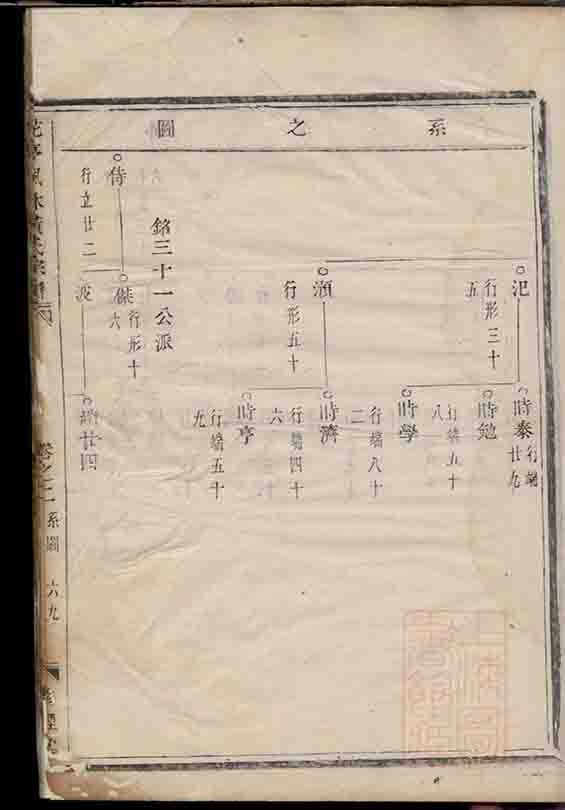 系之圖
汜
行形三十
五
時泰
行端
廿九
時勉
行端五十
八
時學
行端八十
二
澦
行形五十
時濟
行端四十
六
時亨
行端五十
九
銘三十一公派
侍
行立廿二
傑
行形十
六
廿四
卷之二
系圖
六九